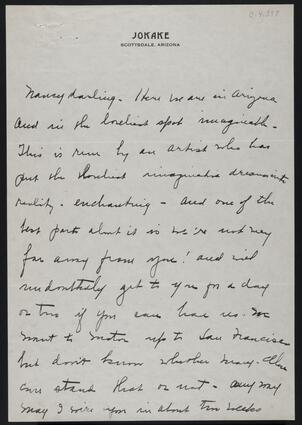 JOKAKE
SCOTTSDALE, ARIZONA
Nancy darling - Here we are in Arizona
and in the loveliest spot imaginable.
This is run by an artist who has
put the loveliest imaginative dream into
reality - enchanting - and one of the
best parts about it is we're not very
far away from you! and will
undoubtedly get to you for a day
or two if you can have us. We
want to motor up to San Francisco
but don't know whether Mary
can stand that or not - anyway
may I wire you in about two weeks